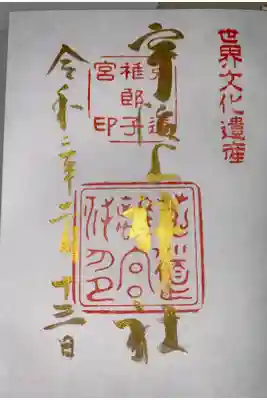 世界文化遺産
宇治上神社
道
稚郎子
宮印
令和二年二月十三日